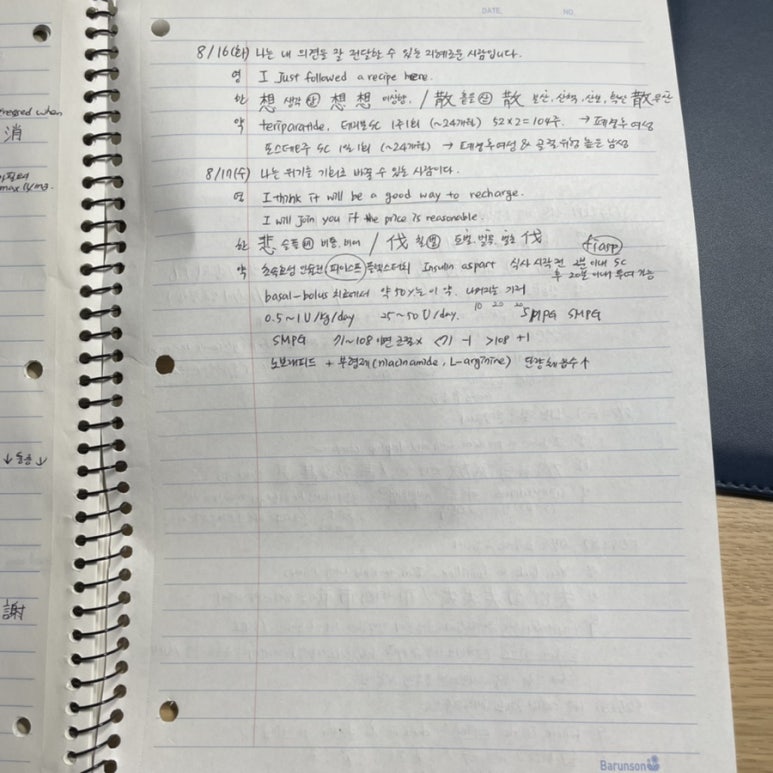 DATE. NO.
8/16(화) 나는 내 의견을 잘 전달할 수 있는 지혜로운 사람입니다.
영 I Just followed a recipe here.
한 想 생각 상 想 想 이상향. / 散 흩을 산 散 분산, 산책, 산보, 확산 散
약 teriparatide, 테리본SC 1주1회 (~24개월) 52×2=104주. → 폐경후 여성
포스테오주 SC 1일1회 (~24개월) → 폐경후여성 & 골절위험 높은 남성
8/17(수) 나는 위기를 기회로 바꿀 수 있는 사람이다.
영 I think it will be a good way to recharge.
I will join you if the price is reasonable.
한 悲 슬플 비 비통, 비애 / 伐 칠 벌 토벌, 벌목, 벌초 伐
fiasp
약 초속효성 인슐린 피아스프 플렉스터치 Insulin aspart 식사 시작 전 2분이내 SC
후 20분이내 투여 가능
basal-bolus 치료에서 약 50%는 이 약. 나머지는 기저
0.5~1U/kg/day 25~50U/day. 10 20 20 SMPG SMPG
SMPG 71~108 이면 조절× <71 -1 >108 +1
노보래피드 + 부형제(niacinamide, L-arginine) 단량체 흡수↑
消
max
謝
Barunson